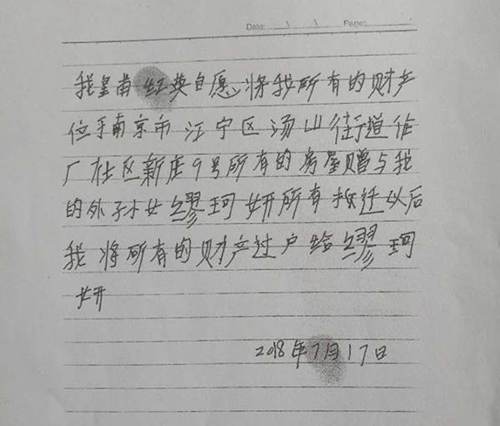 Date: / / Page:
我皇甫红英自愿,将我所有的财产
位于南京市江宁区汤山街道作
厂社区新庄9号所有的房屋赠与我
的外孙女缪珂妍所有拆迁以后
我将所有的财产过户给缪珂
妍
2018年7月17日